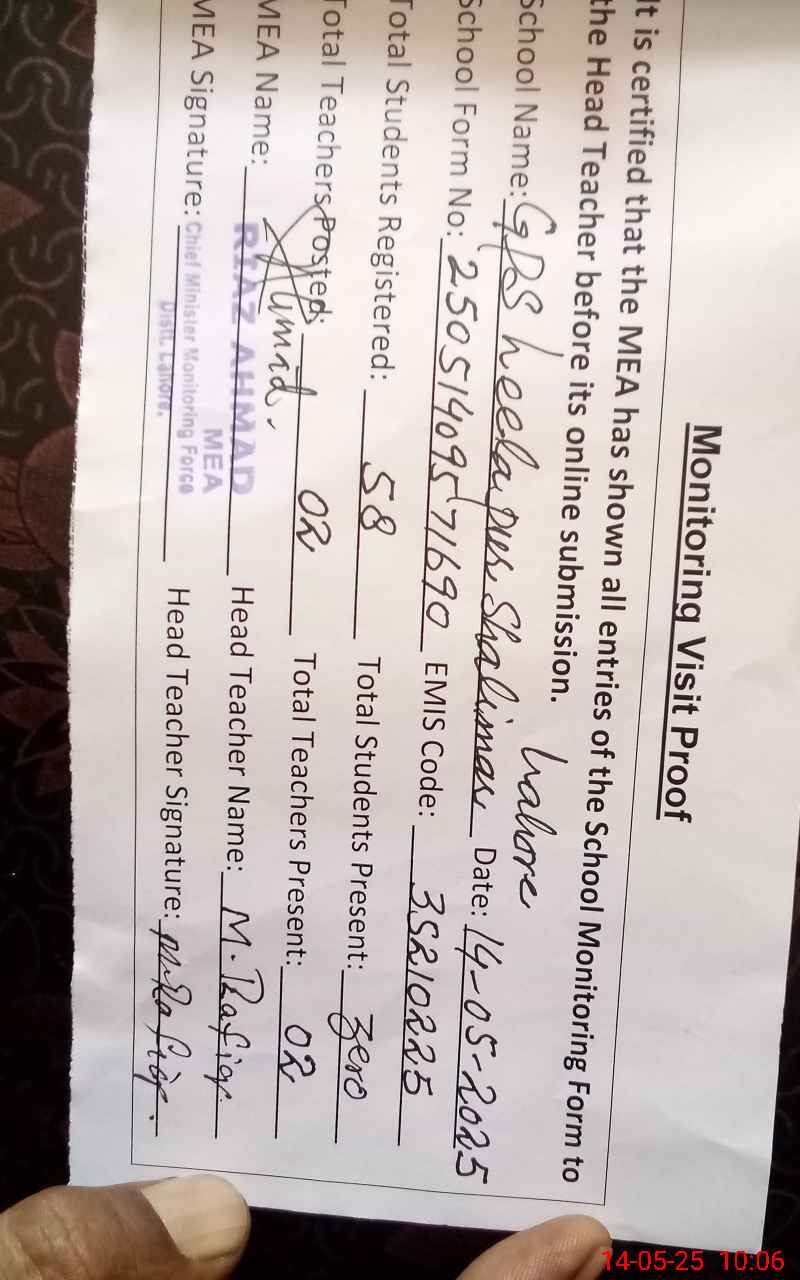 Monitoring Visit Proof
It is certified that the MEA has shown all entries of the School Monitoring Form to
the Head Teacher before its online submission.
Lahore
School Name: GPS heela pur Shalimar Date: 14-05-2025
School Form No: 25051409571690 EMIS Code: 35210225
Total Students Registered: 58 Total Students Present: zero
Total Teachers Posted: 02 Total Teachers Present: 02
Ahmad.
MEA Name: RIAZ AHMAD Head Teacher Name: M. Rafiq
MEA
MEA Signature: Chief Minister Monitoring Force Head Teacher Signature: M Rafiq.
Distt. Lahore.
14-05-25 10:06